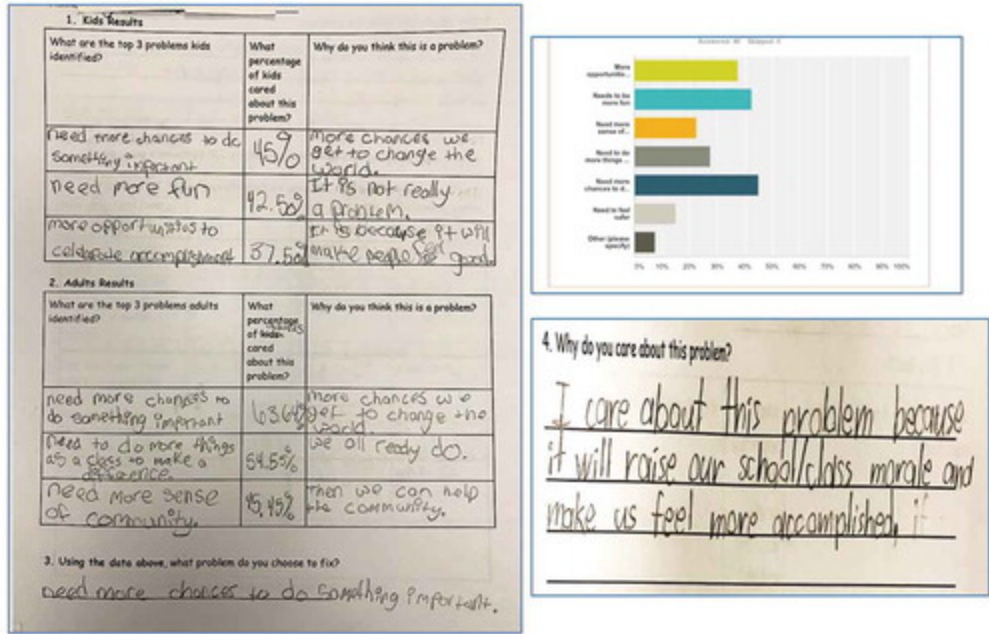 1. Kids Results
What are the top 3 problems kids
identified?
What
percentage
of kids
cared
about this
problem?
Why do you think this is a problem?
need more chances to do
something important
45%
more chances we
get to change the
world.
need more fun
42.50%
It is not really
a problem.
more opportunitos to
celebrate accomplishment
37.50%
It is because it will
make people feel good.
2. Adults Results
What are the top 3 problems adults
identified?
What
percentage
of kids
cared
about this
problem?
Why do you think this is a problem?
need more chances to
do something important
63.64%
more chances we
get to change the
world.
need to do more things
as a class to make a
difference.
54.55%
we all ready do.
need more sense
of community.
45.45%
then we can help
the community.
3. Using the data above, what problem do you choose to fix?
need more chances to do something important.
More
opportunitie...
Needs to be
more fun
Need more
sense of...
Need to do
more things ...
Need more
chances to d...
Need to feel
safer
Other (please
specify)
0% 10% 20% 30% 40% 50% 60% 70% 80% 90% 100%
4. Why do you care about this problem?
I care about this problem because
it will raise our school/class morale and
make us feel more accomplished.